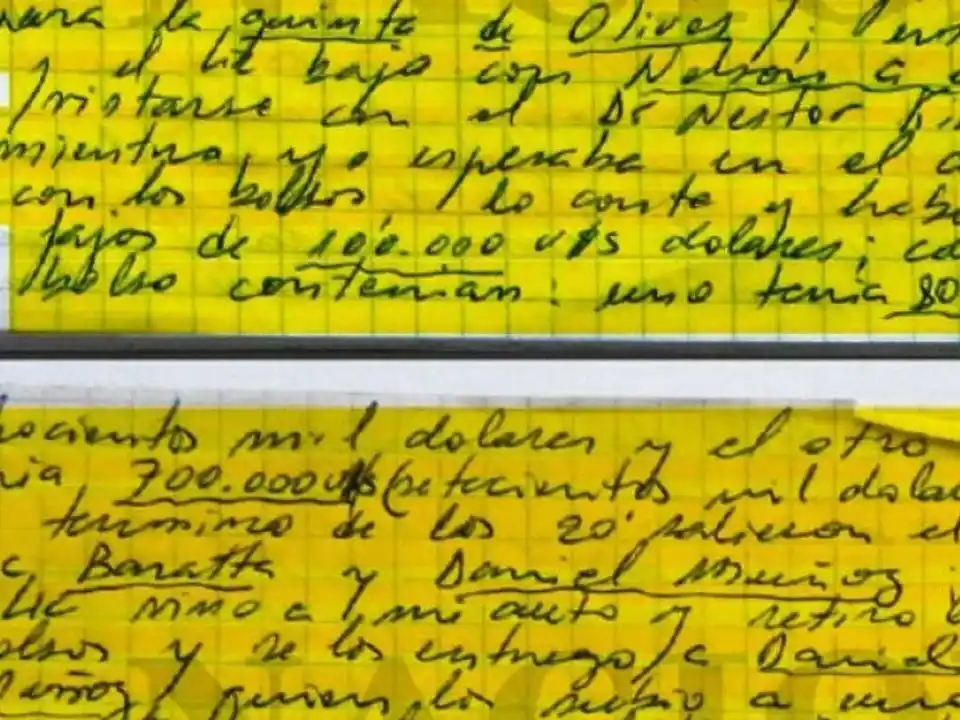 para la quinta de Olivos
y el Lic bajo con Nelson a
/vistarse con el Dr Nestor
mientra, yo esperaba en el
con los bolsos / lo conte y
fajos de 100.000 U$S dolares;
/bolso contenian: uno tenia 80
ocientos mil dolares y el otro
nia 700.000 U$S (setecientos mil dola
termino de los 20' salieron el
c, Baratta y Daniel Muñoz
Lic vino a / mi auto y retiro
olsos y se los entrego / a Daniel
Muñoz / quien los subio a una